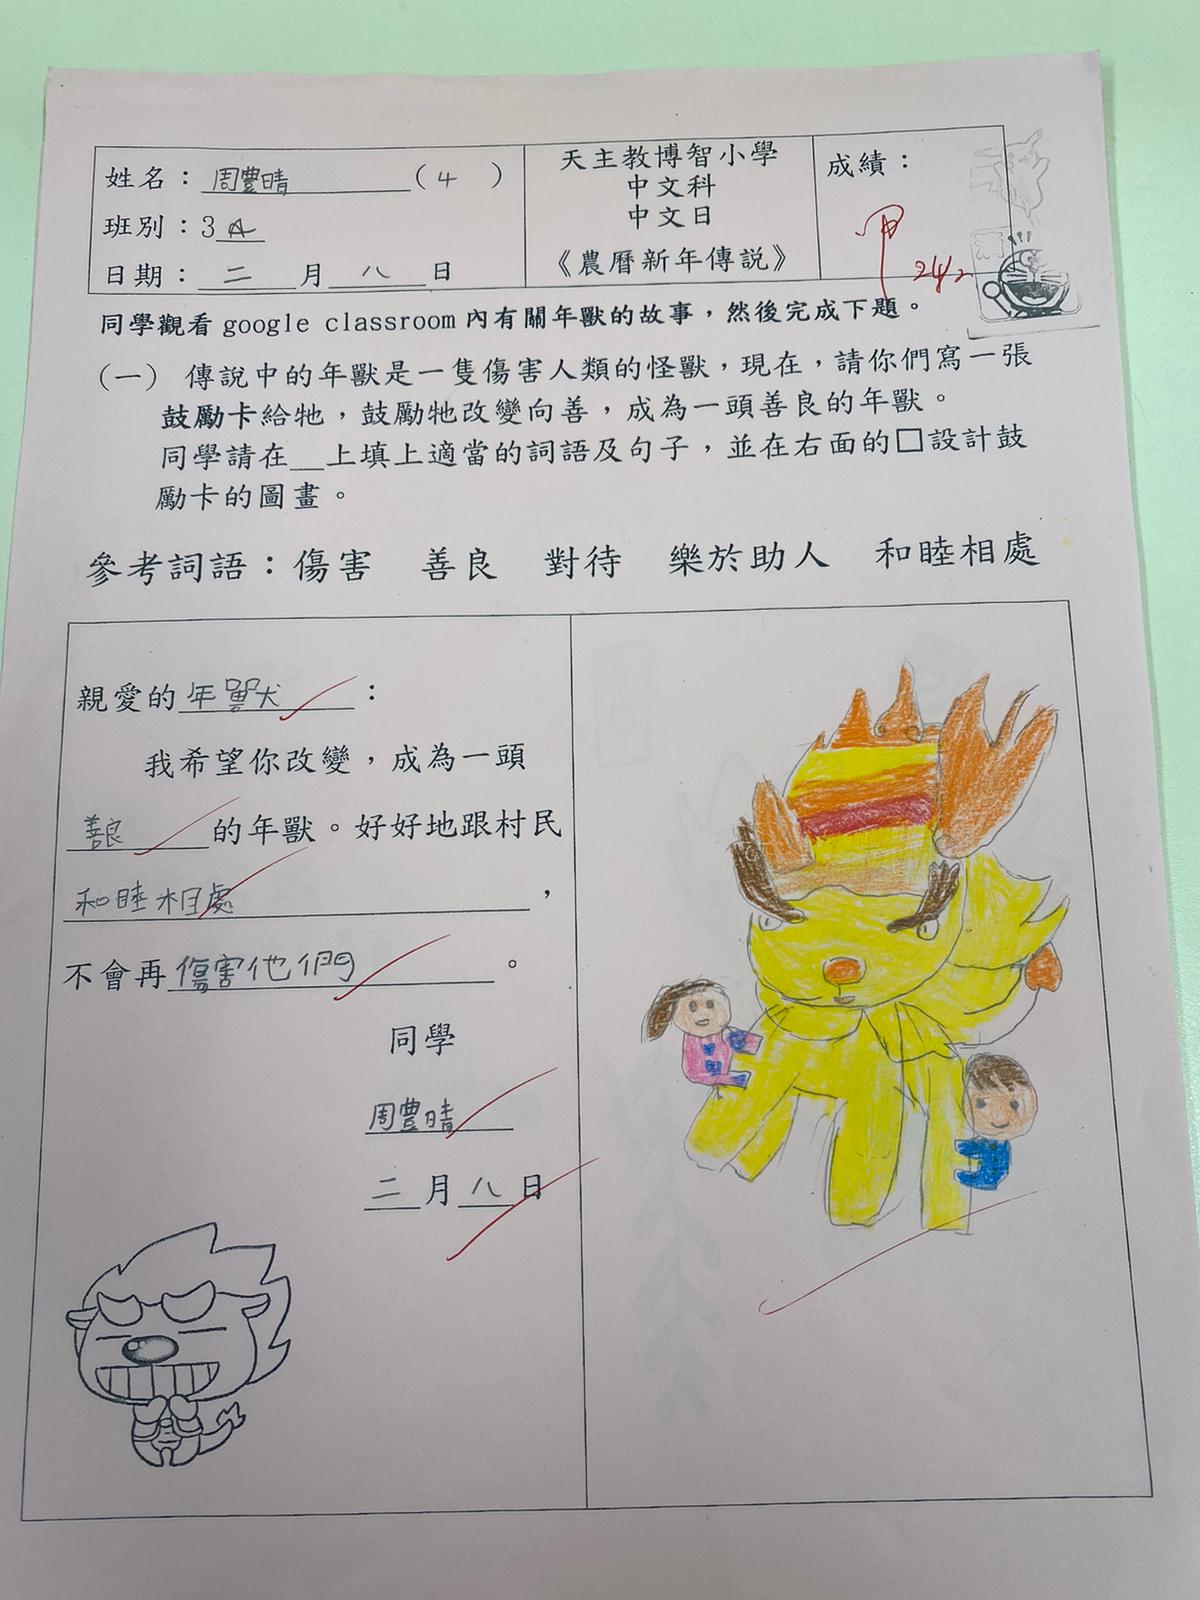 姓名：周豐晴（4）
班別：3A
日期：二月八日
天主教博智小學
中文科
中文日
《農曆新年傳說》
成績：
甲
24/2
同學觀看 google classroom 內有關年獸的故事，然後完成下題。
（一） 傳說中的年獸是一隻傷害人類的怪獸，現在，請你們寫一張
鼓勵卡給牠，鼓勵牠改變向善，成為一頭善良的年獸。
同學請在__上填上適當的詞語及句子，並在右面的□設計鼓
勵卡的圖畫。
參考詞語：傷害 善良 對待 樂於助人 和睦相處
親愛的年獸：
我希望你改變，成為一頭
善良的年獸。好好地跟村民
和睦相處，
不會再傷害他們。
同學
周豐晴
二月八日